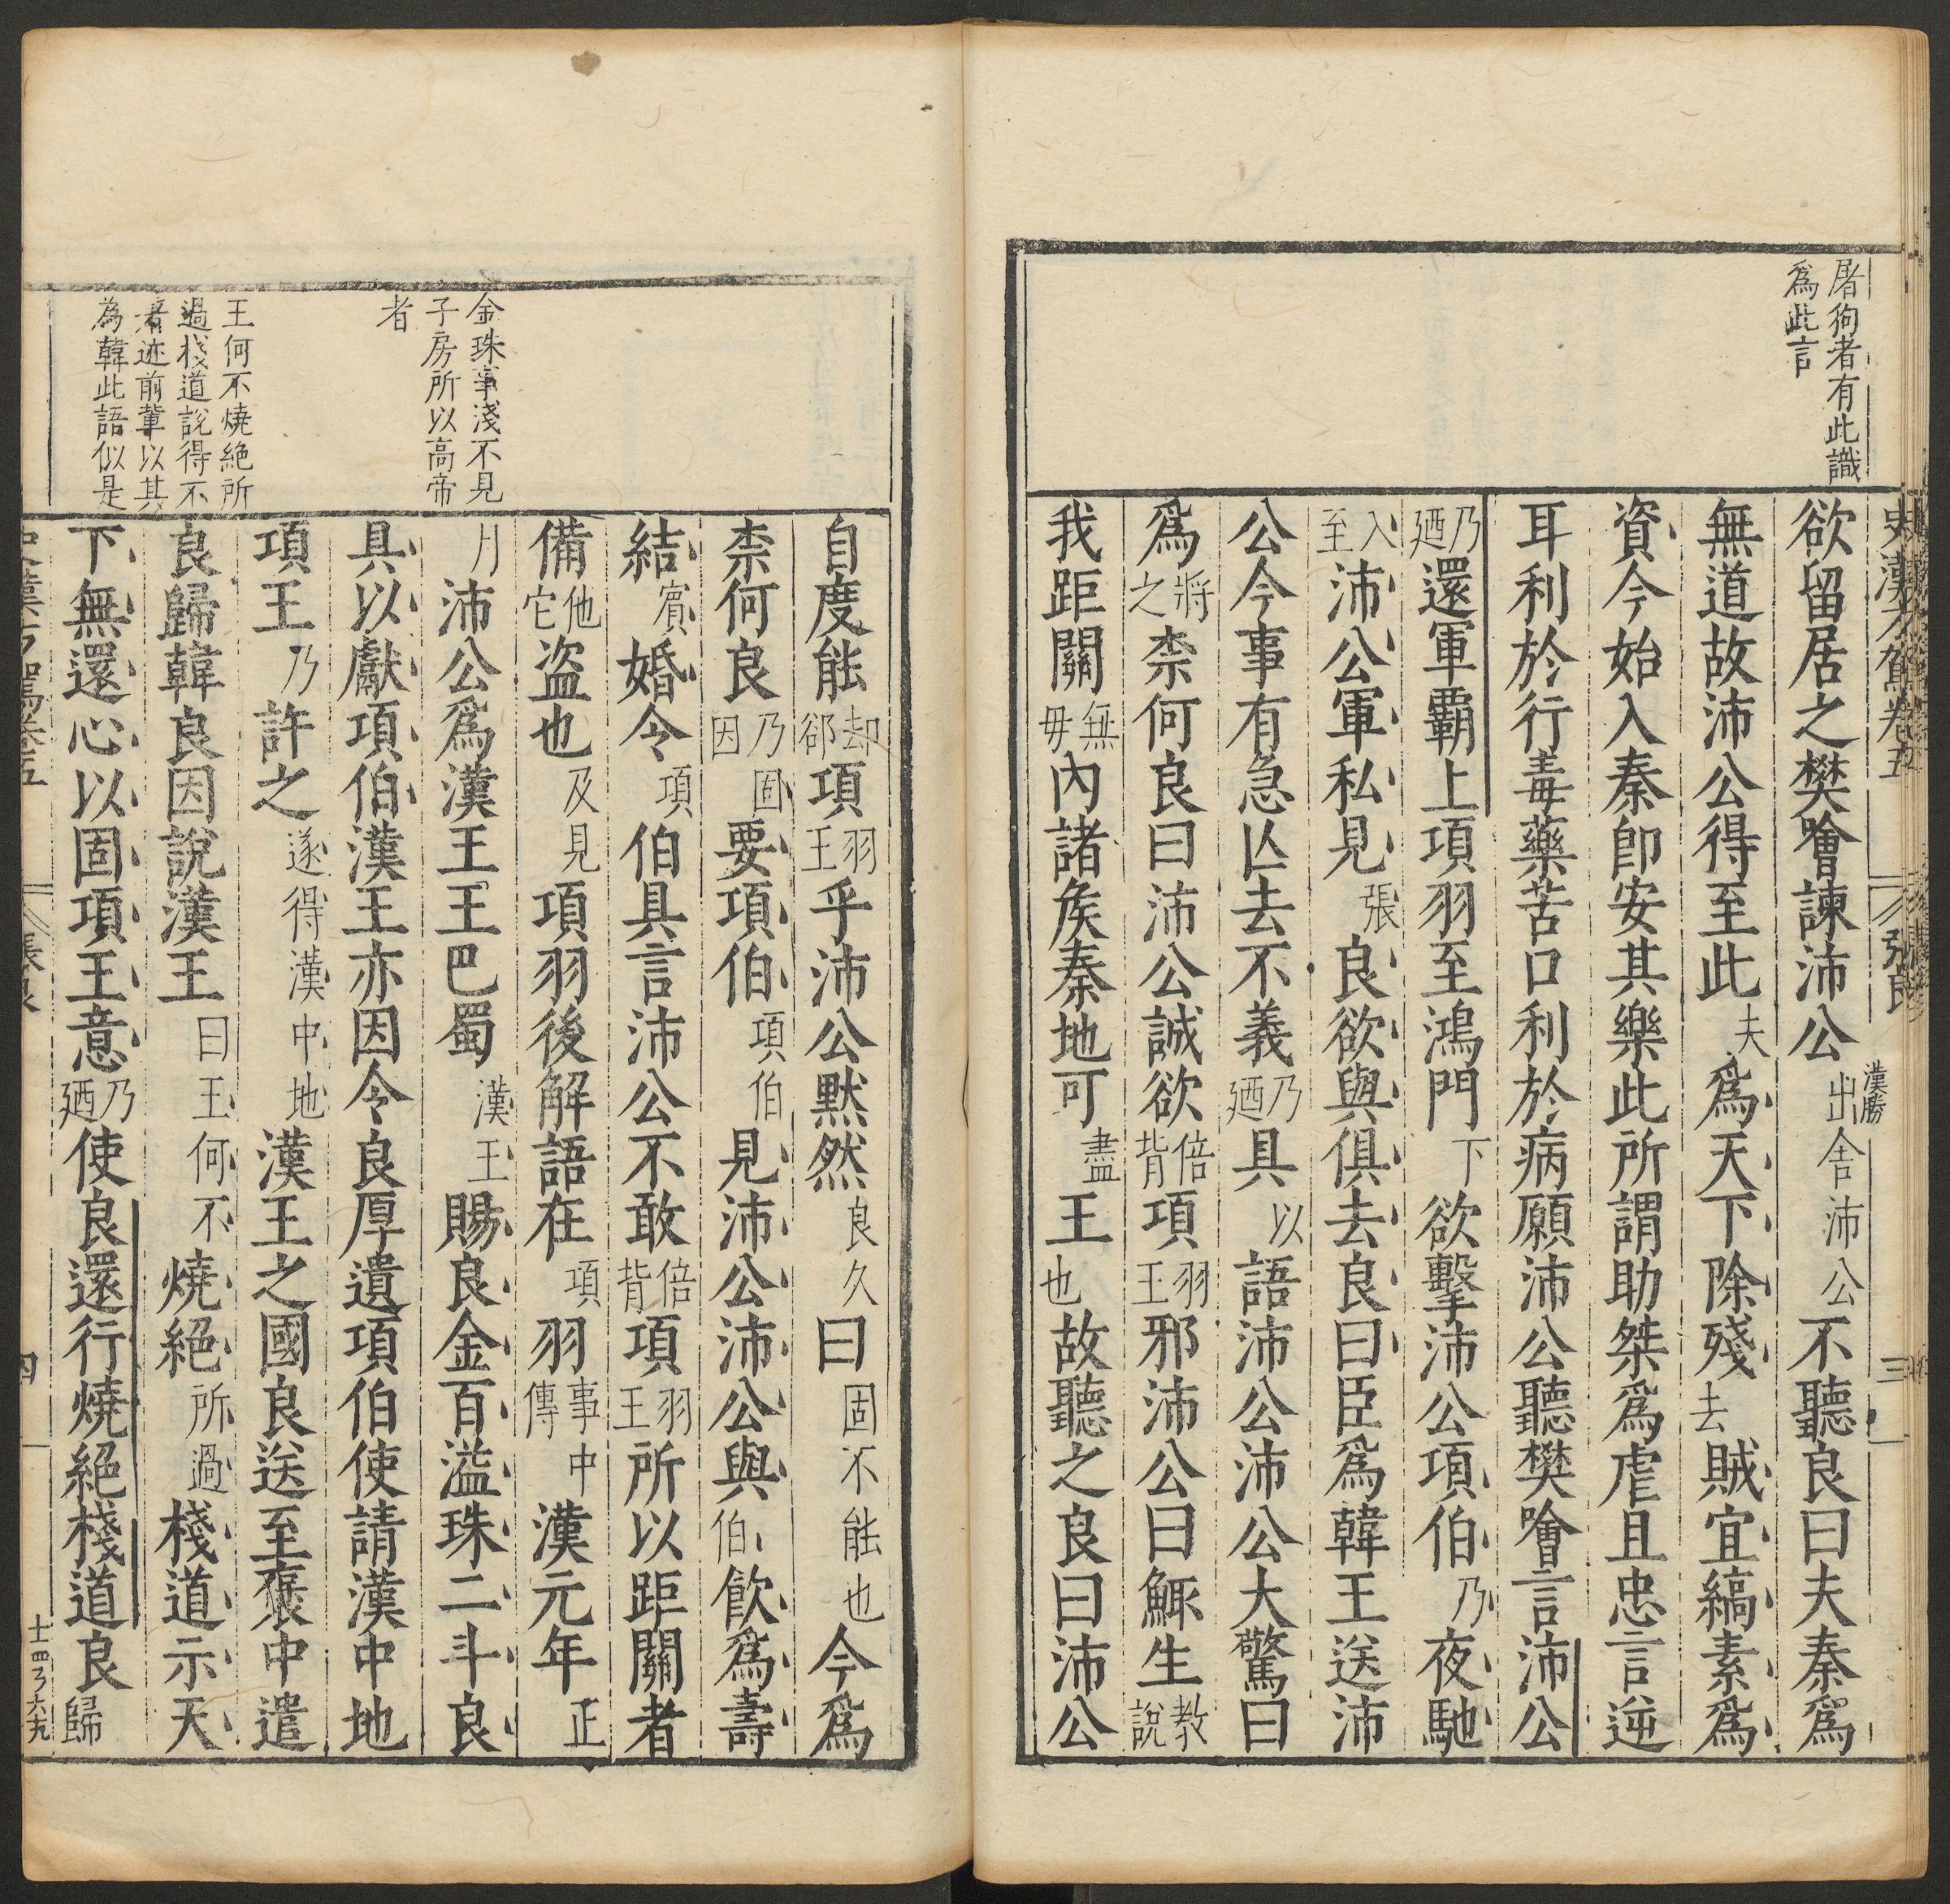 史漢方駕卷五 張良 三
屠狗者有此識
爲此言
欲留居之樊噲諫沛公漢勝出舍沛公不聽良曰夫秦爲
無道故沛公得至此夫爲天下除殘去賊宜縞素爲
資今始入秦卽安其樂此所謂助桀爲虐且忠言逆
耳利於行毒藥苦口利於病願沛公聽樊噲言沛公
乃廼還軍霸上項羽至鴻門下欲擊沛公項伯乃夜馳
入至沛公軍私見張良欲與俱去良曰臣爲韓王送沛
公今事有急亾去不義乃廼具以語沛公沛公大驚曰
爲將之柰何良曰沛公誠欲倍背項羽王邪沛公曰鯫生教說
我距關無毋內諸矦秦地可盡王也故聽之良曰沛公
自度能却郤項羽王乎沛公默然良久曰固不能也今爲
柰何良乃因固要項伯項伯見沛公沛公與伯飲爲壽
結賓婚令項伯具言沛公不敢倍背項羽王所以距關者
備他它盜也及見項羽後解語在項羽事傳中漢元年正
月沛公爲漢王王巴蜀漢王賜良金百溢珠二斗良
具以獻項伯漢王亦因令良厚遺項伯使請漢中地
項王乃許之遂得漢中地漢王之國良送至襃中遣
良歸韓良因說漢王曰王何不燒絕所過棧道示天
下無還心以固項王意乃廼使良還行燒絕棧道良歸
金珠事淺不見
子房所以高帝
者
王何不燒絕所
過棧道説得不
着迹前輩以其
為韓此語似是
史漢方駕卷五 張良 四